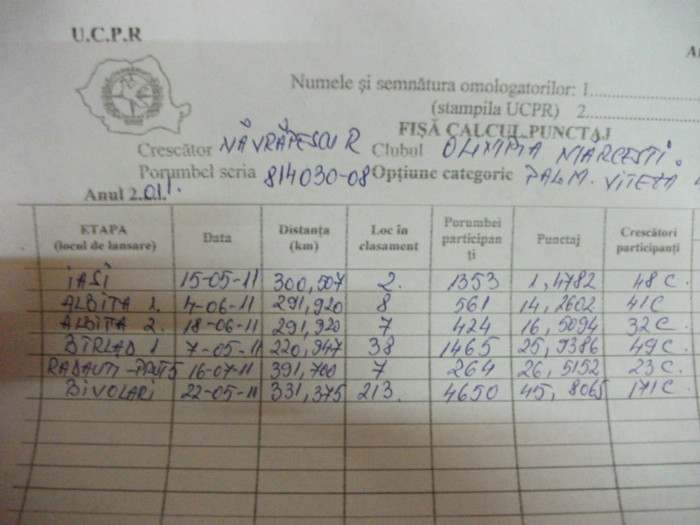 U.C.P.R
Numele și semnătura omologatorilor: 1..............
(stampila UCPR) 2..............
FIȘĂ CALCUL PUNCTAJ
Crescător NĂVRĂPESCU R Clubul OLIMPIA MĂRCEȘTI.
Porumbel seria 814030-08 Opțiune categorie PALM. VITEZA
Anul 2.011.
ETAPA (locul de lansare) Data Distanța (km) Loc în clasament Porumbei participanți Punctaj Crescători participanți
IASI 15-05-11 300,507 2. 1353 1,4782 48 C.
ALBITA 1. 4-06-11 291,920 8 561 14,2602 41 C
ALBITA 2. 18-06-11 291,920 7 424 16,5094 32 C.
BIRLAD 1 7-05-11 220,947 38 1465 25,9386 49 C.
RADAUTI-PRUT 5 16-07-11 391,700 7 264 26,5152 23 C.
BIVOLARI 22-05-11 331,375 213. 4650 45,8065 171 C